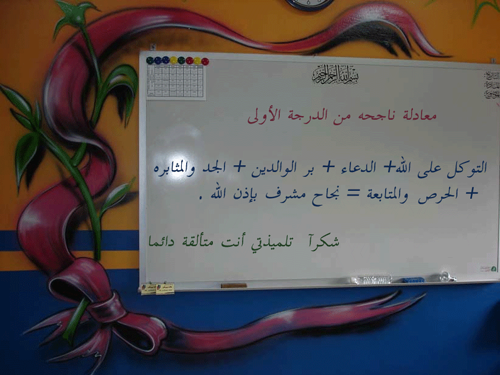 بسم الله الرحمن الرحيم
معادلة ناجحه من الدرجة الأولى
التوكل على الله+ الدعاء + بر الوالدين + الجد والمثابره
+ الحرص والمتابعة = نجاح مشرف بإذن الله .
شكرآ تلميذتي أنت متألقة دائما